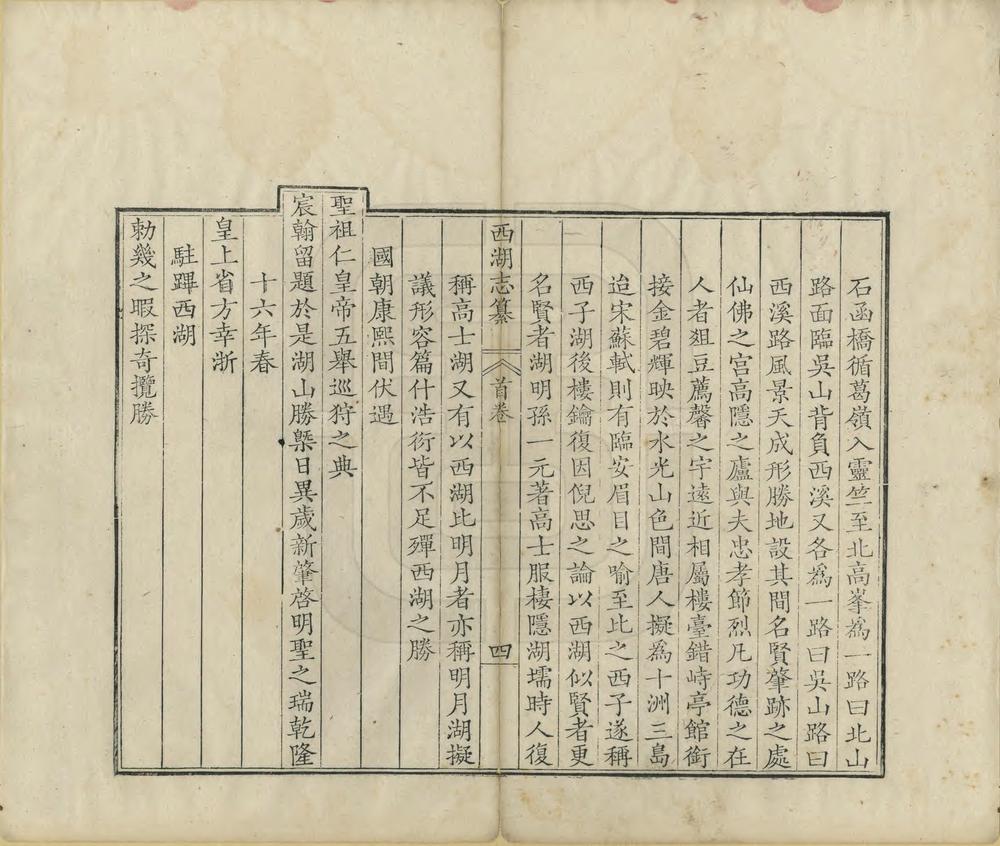 石函橋循葛嶺入靈竺至北高峯為一路曰北山
路面臨吳山背負西溪又各為一路曰吳山路曰
西溪路風景天成形勝地設其間名賢肇跡之處
仙佛之宫高隱之廬與夫忠孝節烈凡功德之在
人者俎豆薦馨之宇遠近相屬樓臺錯峙亭館銜
接金碧輝映於水光山色間唐人擬為十洲三島
迨宋蘇軾則有臨安眉目之喻至比之西子遂稱
西子湖後樓鑰復因倪思之論以西湖似賢者更
名賢者湖明孫一元著高士服棲隱湖壖時人復
西湖志纂 首卷 四
稱高士湖又有以西湖比明月者亦稱明月湖擬
議形容篇什浩衍皆不足殫西湖之勝
國朝康熙間伏遇
聖祖仁皇帝五舉巡狩之典
宸翰留題於是湖山勝槩日異歲新肇啓明聖之瑞乾隆
十六年春
皇上省方幸浙
駐蹕西湖
勅幾之暇探奇攬勝